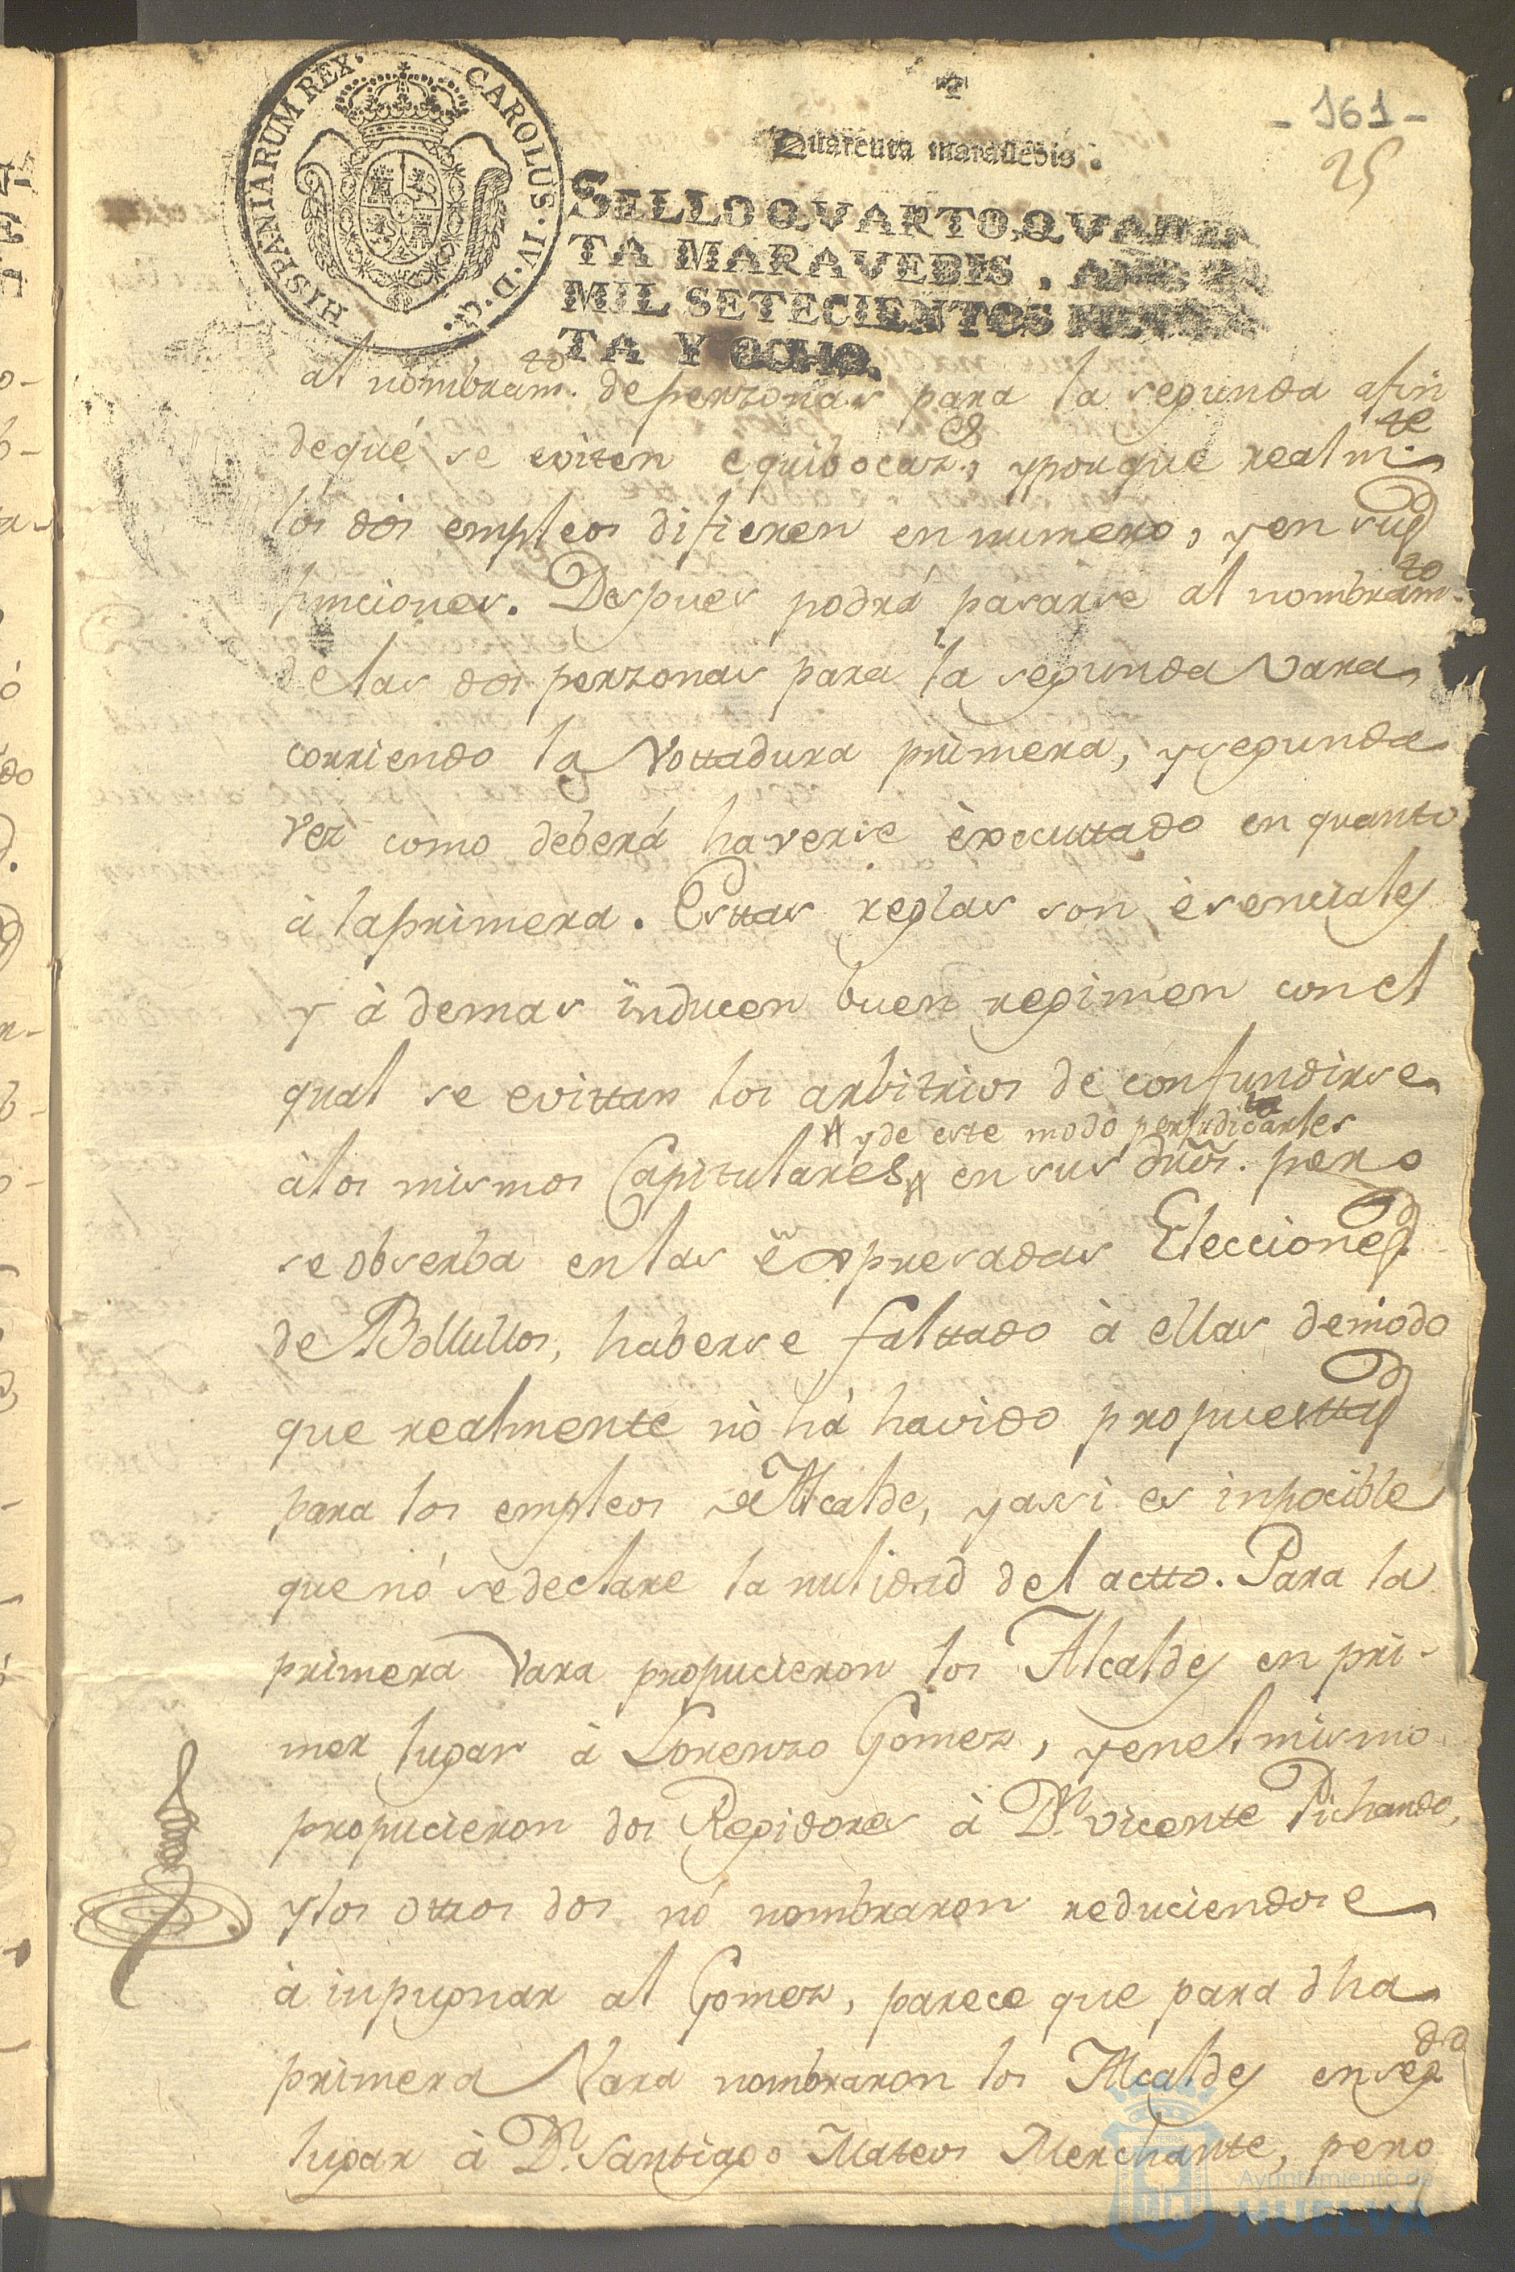 - 161 -
25
HISPANIARUM REX. CAROLUS. IV. D. G.
Quarenta maravedis.
SELLO QVARTO, QVAREN
TA MARAVEDIS, AÑO DE
MIL SETECIENTOS NOVEN
TA Y OCHO.
al nombram.to deperzonas para la segunda afin
dequé se eviten equibocaz.s, yporque realm.te
los dos empleos difieren en numero, y en sus
funciones. Despues podrá pasarse al nombram.to
de las dos perzonas para la segunda Vara
corriendo la Vottadura primera, ysegunda
vez como deberá haverse èxecuttado en quanto
à laprimera. Esttas reglas son èsenciales
y à demas inducen buen regimen con el
qual se evittan los arbitrios de confundirse
yde este modo perjudicarles
àlos mismos Capitulares en sus dros. pero
se obserba en las expresadas Elecciones
de Bollullos, haberse falttado à ellas demodo
que realmente nò hà havido propuesttas
para los empleos de Alcalde, y assi es inpocible
que nó se declare la nulidad del actto. Para la
primera Vara propucieron los Alcaldes en pri-
mer lugar à Lorenzo Gomez, yenelmismo
propucieron dos Regidores à D.n Vicente Pichardo,
ylos ottros dos nó nombraron reduciendose
à inpugnar al Gomez, parece que para dha
primera Vara nombraron los Alcaldes en seg.do
lugar à D.n Santiago Mateos Merchante, pero
Ayuntamiento de
HUELVA